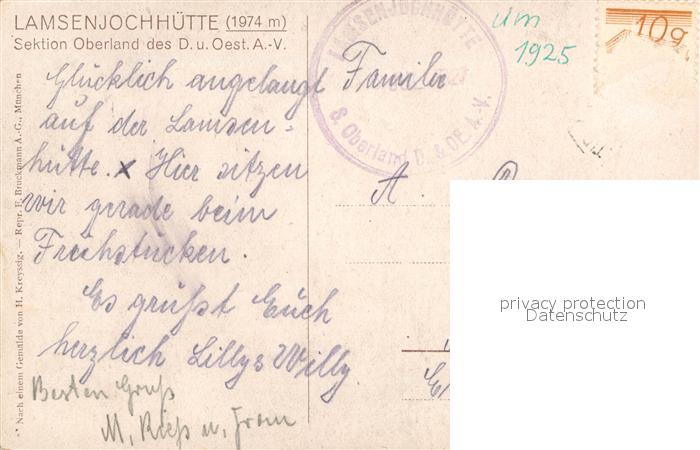 LAMSENJOCHHÜTTE (1974 m)
Sektion Oberland des D. u. Oest. A.-V.
Glücklich angelangt
auf der Lamsen-
hütte. x Hier sitzen
wir gerade beim
Frühstücken.
Es grüßt Euch
herzlich Lillys Willy.
Besten Gruß
M. Rieß u. Frau
Nach einem Gemälde von H. Kreyssig. — Repr. F. Bruckmann A.-G., München
LAMSENJOCHHÜTTE
S. Oberland D. & OE. A. V.
um
1925
10g
Familie
A.
privacy protection
Datenschutz